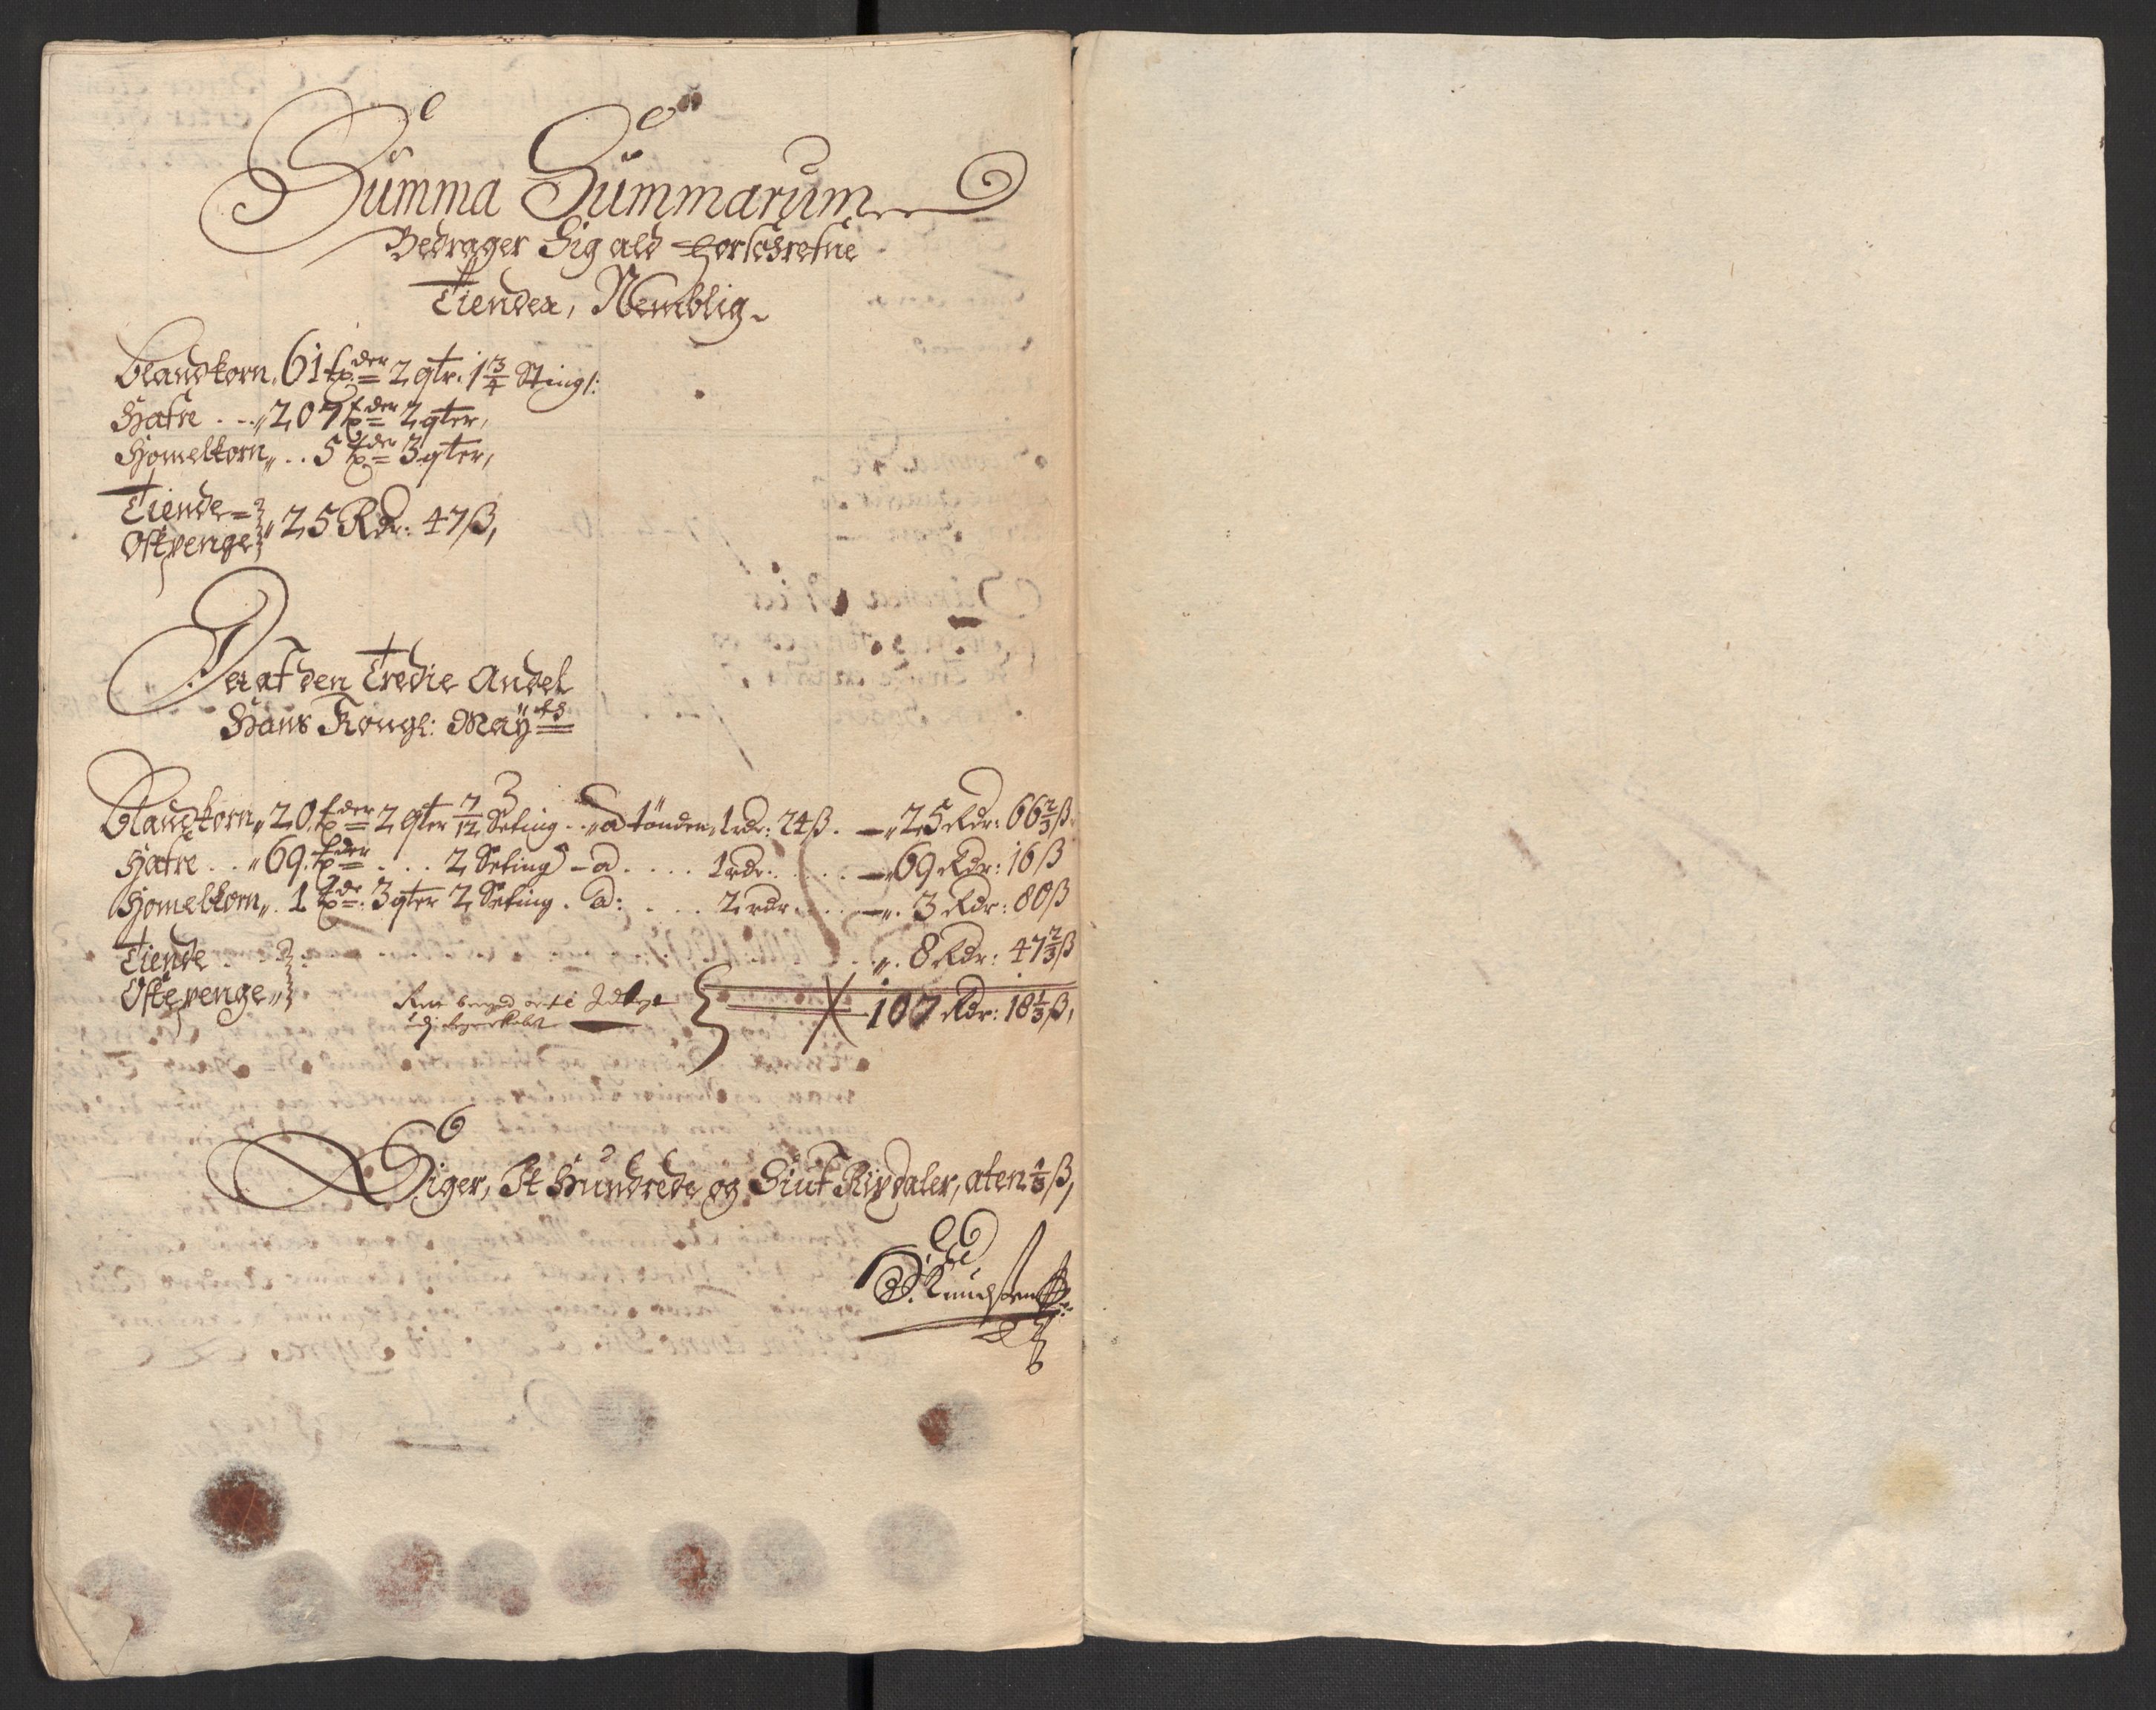 Summa Summarum
Bedrager Sig ald forschrefne
Tiender, Nemblig.
Blandkorn. 61 tø:der 2 qtr. 1 3/4 Sting l:
Hafre . . . 207 tø:der 2 qter,
Homelkorn . . 5 tø:der 3 qter,
Tiende=
Ostpenge 25 Rdr: 47 ß,
Der af den Tredie Andel
Hans Kongl: Mayts
Blandkorn 20. tø:der 2 qter 7/12 Seting . . a tønden 1 rdr: 24 ß. — 25 Rdr: 66 2/3 ß
Hafre . . 69. tø:der . . . 2 Seting - a . . . . 1 rdr: . . . — 69 Rdr: 16 ß
Homelkorn . 1 tø:de: 3 qter 2 Seting . a: . . . 2 rdr . . . — 3 Rdr: 80 ß
Tiende . . . 8 Rdr: 47 2/3 ß
Ostepenge
107 Rdr: 18 1/3 ß,
Siger, It Hundrede og Siuf Rixdaler, aten 1/3 ß,
Knudsen